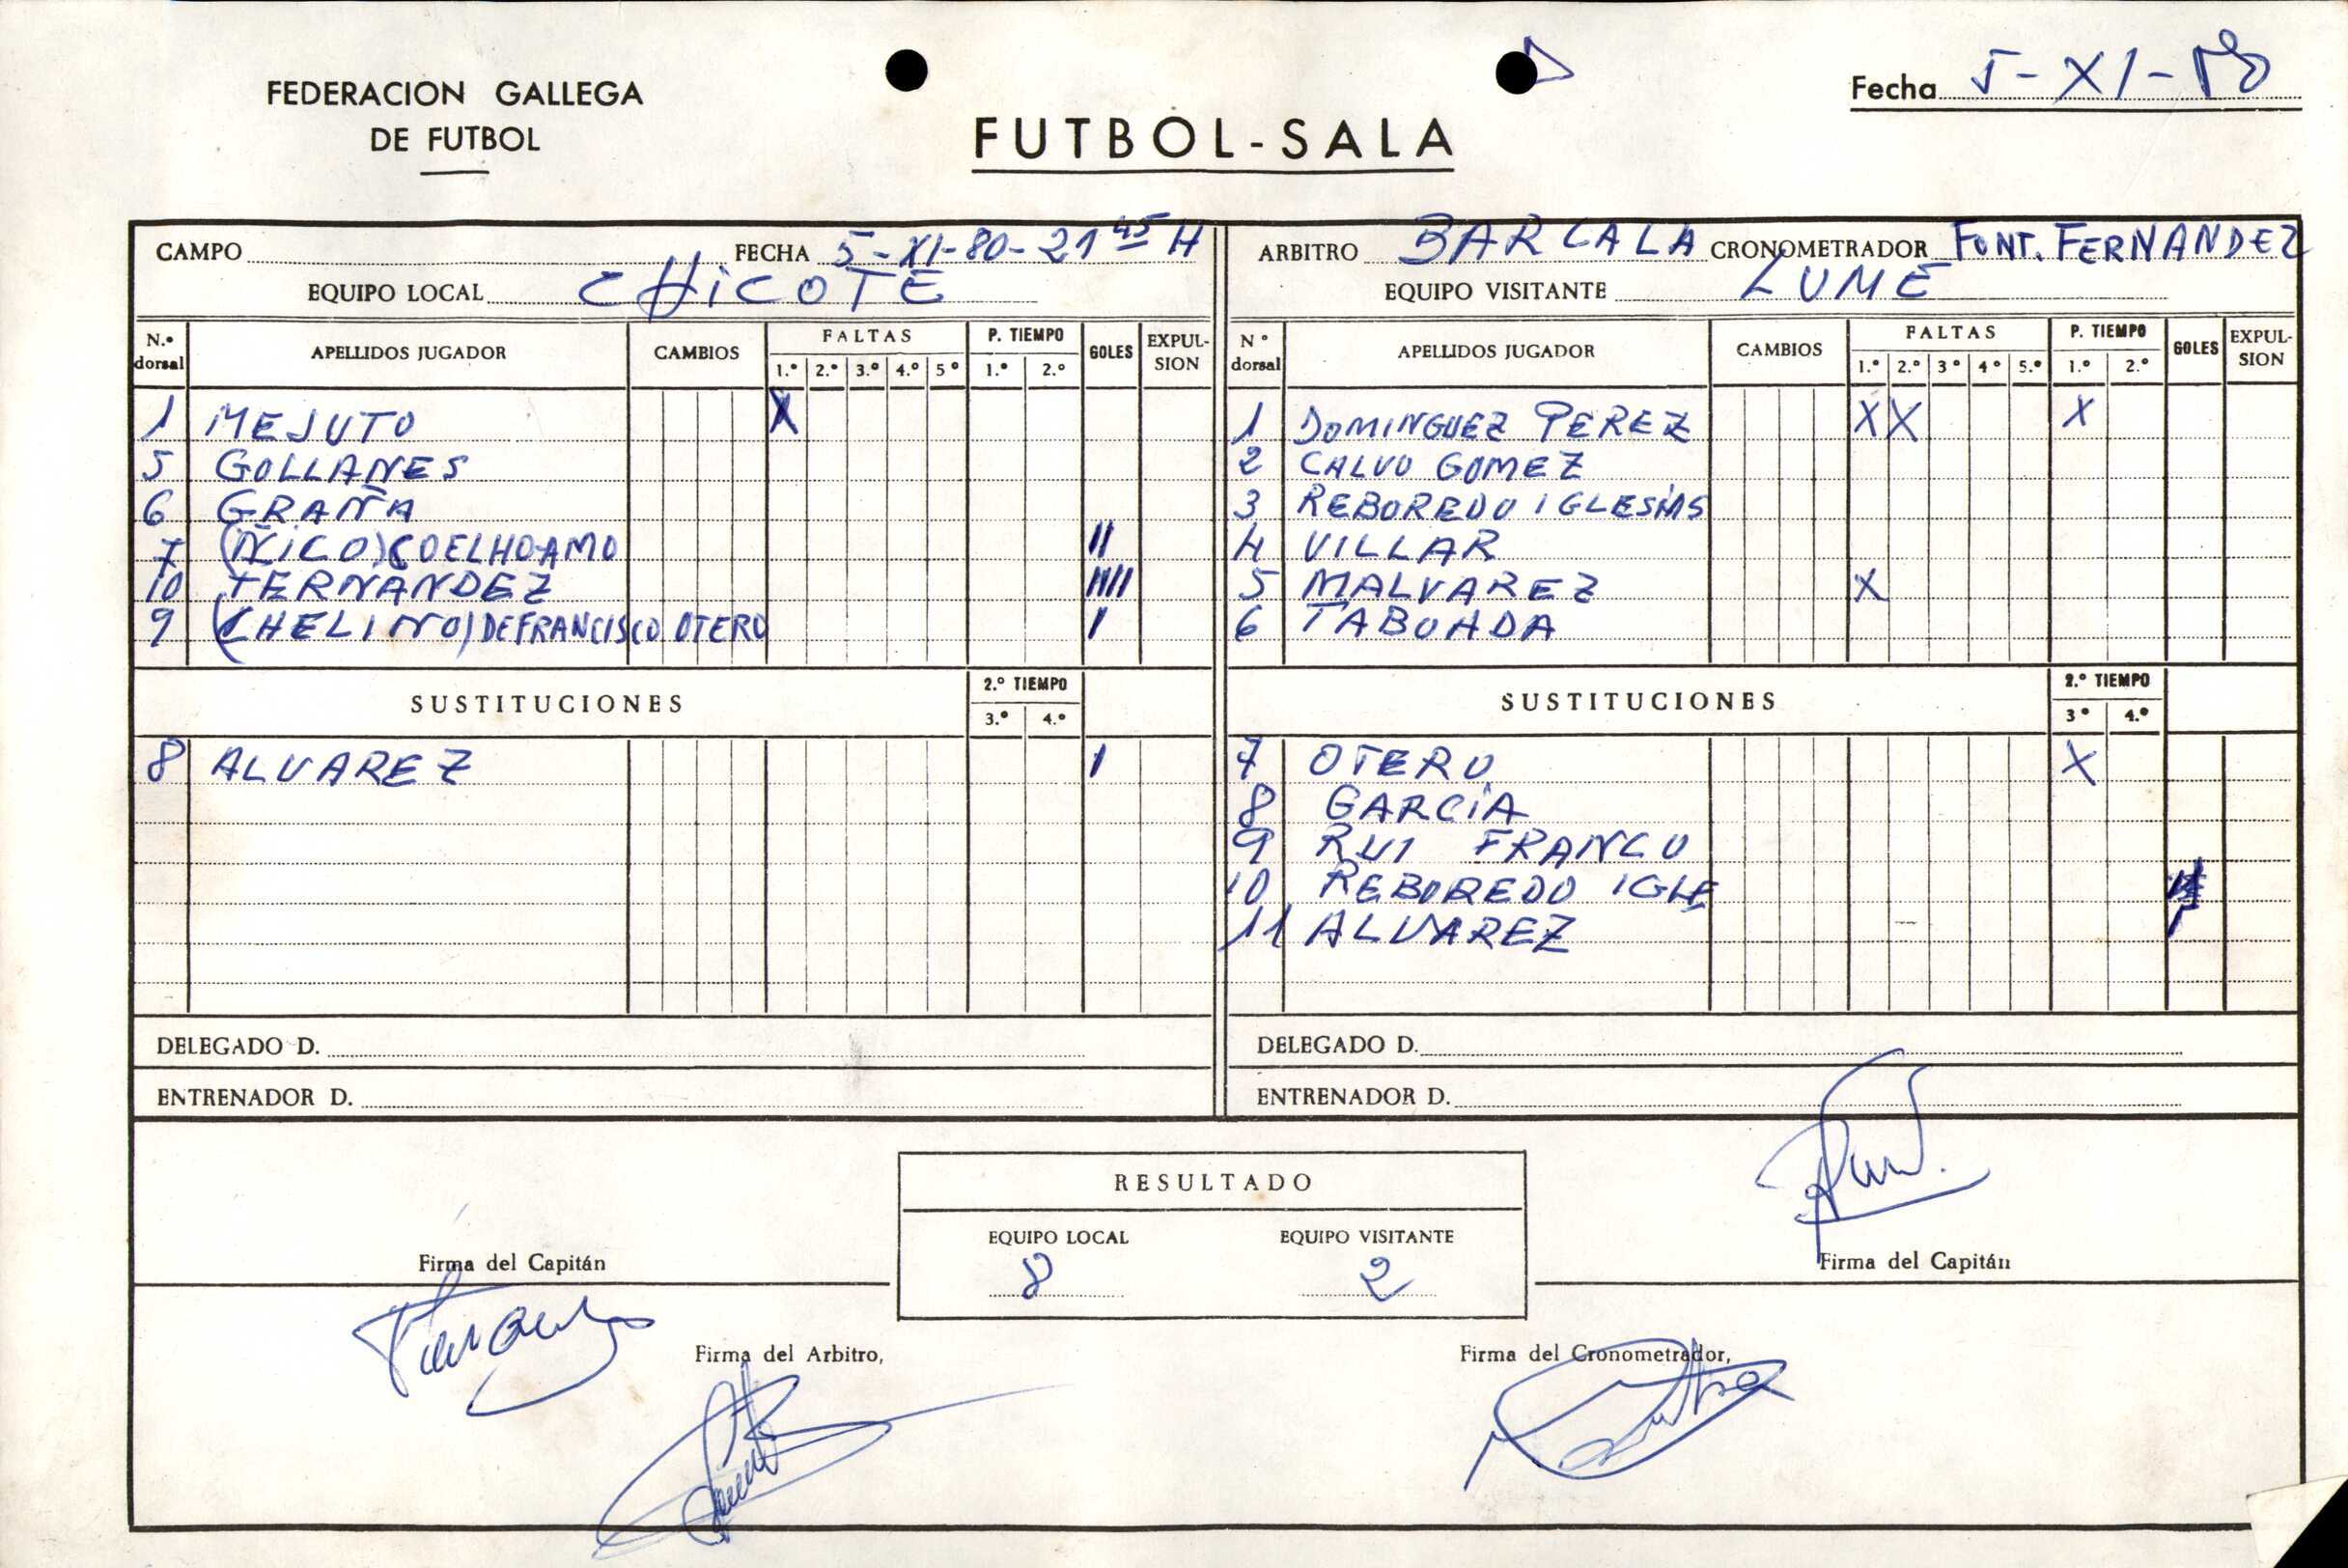 FEDERACION GALLEGA
DE FUTBOL
FUTBOL-SALA
Fecha 5-XI-80
CAMPO FECHA 5-XI-80-21 45 H
EQUIPO LOCAL CHICOTE
N.º dorsal APELLIDOS JUGADOR CAMBIOS FALTAS P. TIEMPO GOLES EXPULSION
1.º 2.º 3.º 4.º 5º 1.º 2.º
1 MEJUTO X
5 GOLLANES
6 GRAÑA
7 (NICO) COELHO AMO II
10 FERNANDEZ IIII
9 (CHELINO) DE FRANCISCO OTERO I
SUSTITUCIONES 2.º TIEMPO
3.º 4.º
8 ALVAREZ I
DELEGADO D.
ENTRENADOR D.
ARBITRO BARCALA CRONOMETRADOR FONT. FERNANDEZ
EQUIPO VISITANTE LUME
Nº dorsal APELLIDOS JUGADOR CAMBIOS FALTAS P. TIEMPO GOLES EXPULSION
1.º 2.º 3º 4º 5.º 1.º 2.º
1 DOMINGUEZ PEREZ X X X
2 CALVO GOMEZ
3 REBOREDO IGLESIAS
4 VILLAR
5 MALVAREZ X
6 TABOADA
SUSTITUCIONES 2.º TIEMPO
3º 4.º
7 OTERO X
8 GARCIA
9 RUI FRANCO
10 REBOREDO IGLE
11 ALVAREZ I
DELEGADO D.
ENTRENADOR D.
RESULTADO
EQUIPO LOCAL EQUIPO VISITANTE
8 2
Firma del Capitán
Firma del Capitán
Firma del Arbitro,
Firma del Cronometrador,